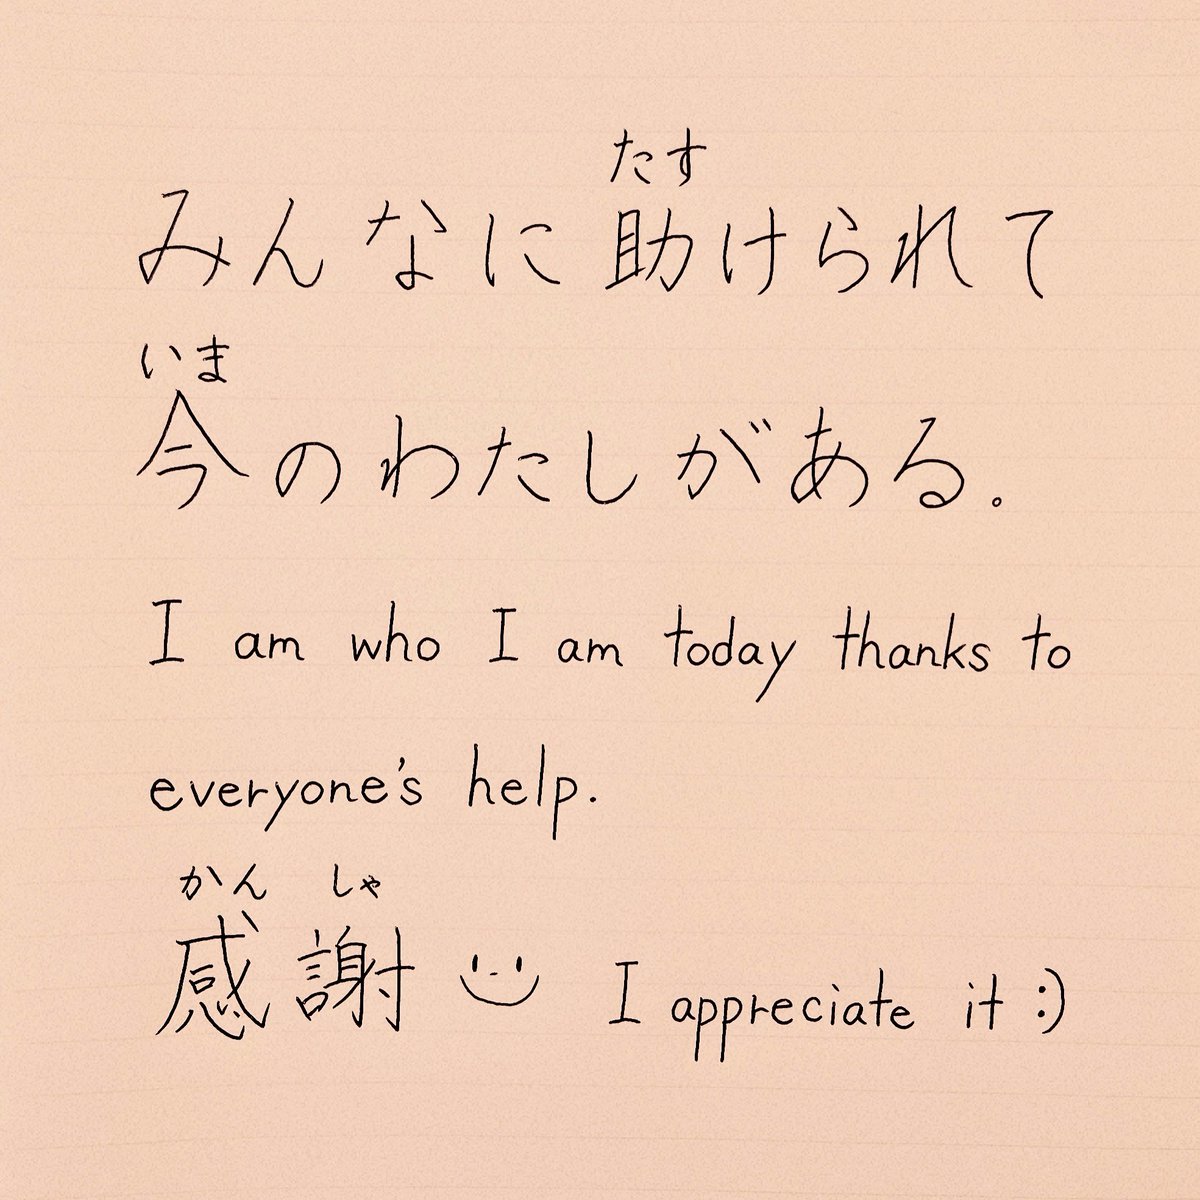 たす
みんなに助けられて
いま
今のわたしがある。
I am who I am today thanks to
everyone's help.
かん しゃ
感謝 I appreciate it :)